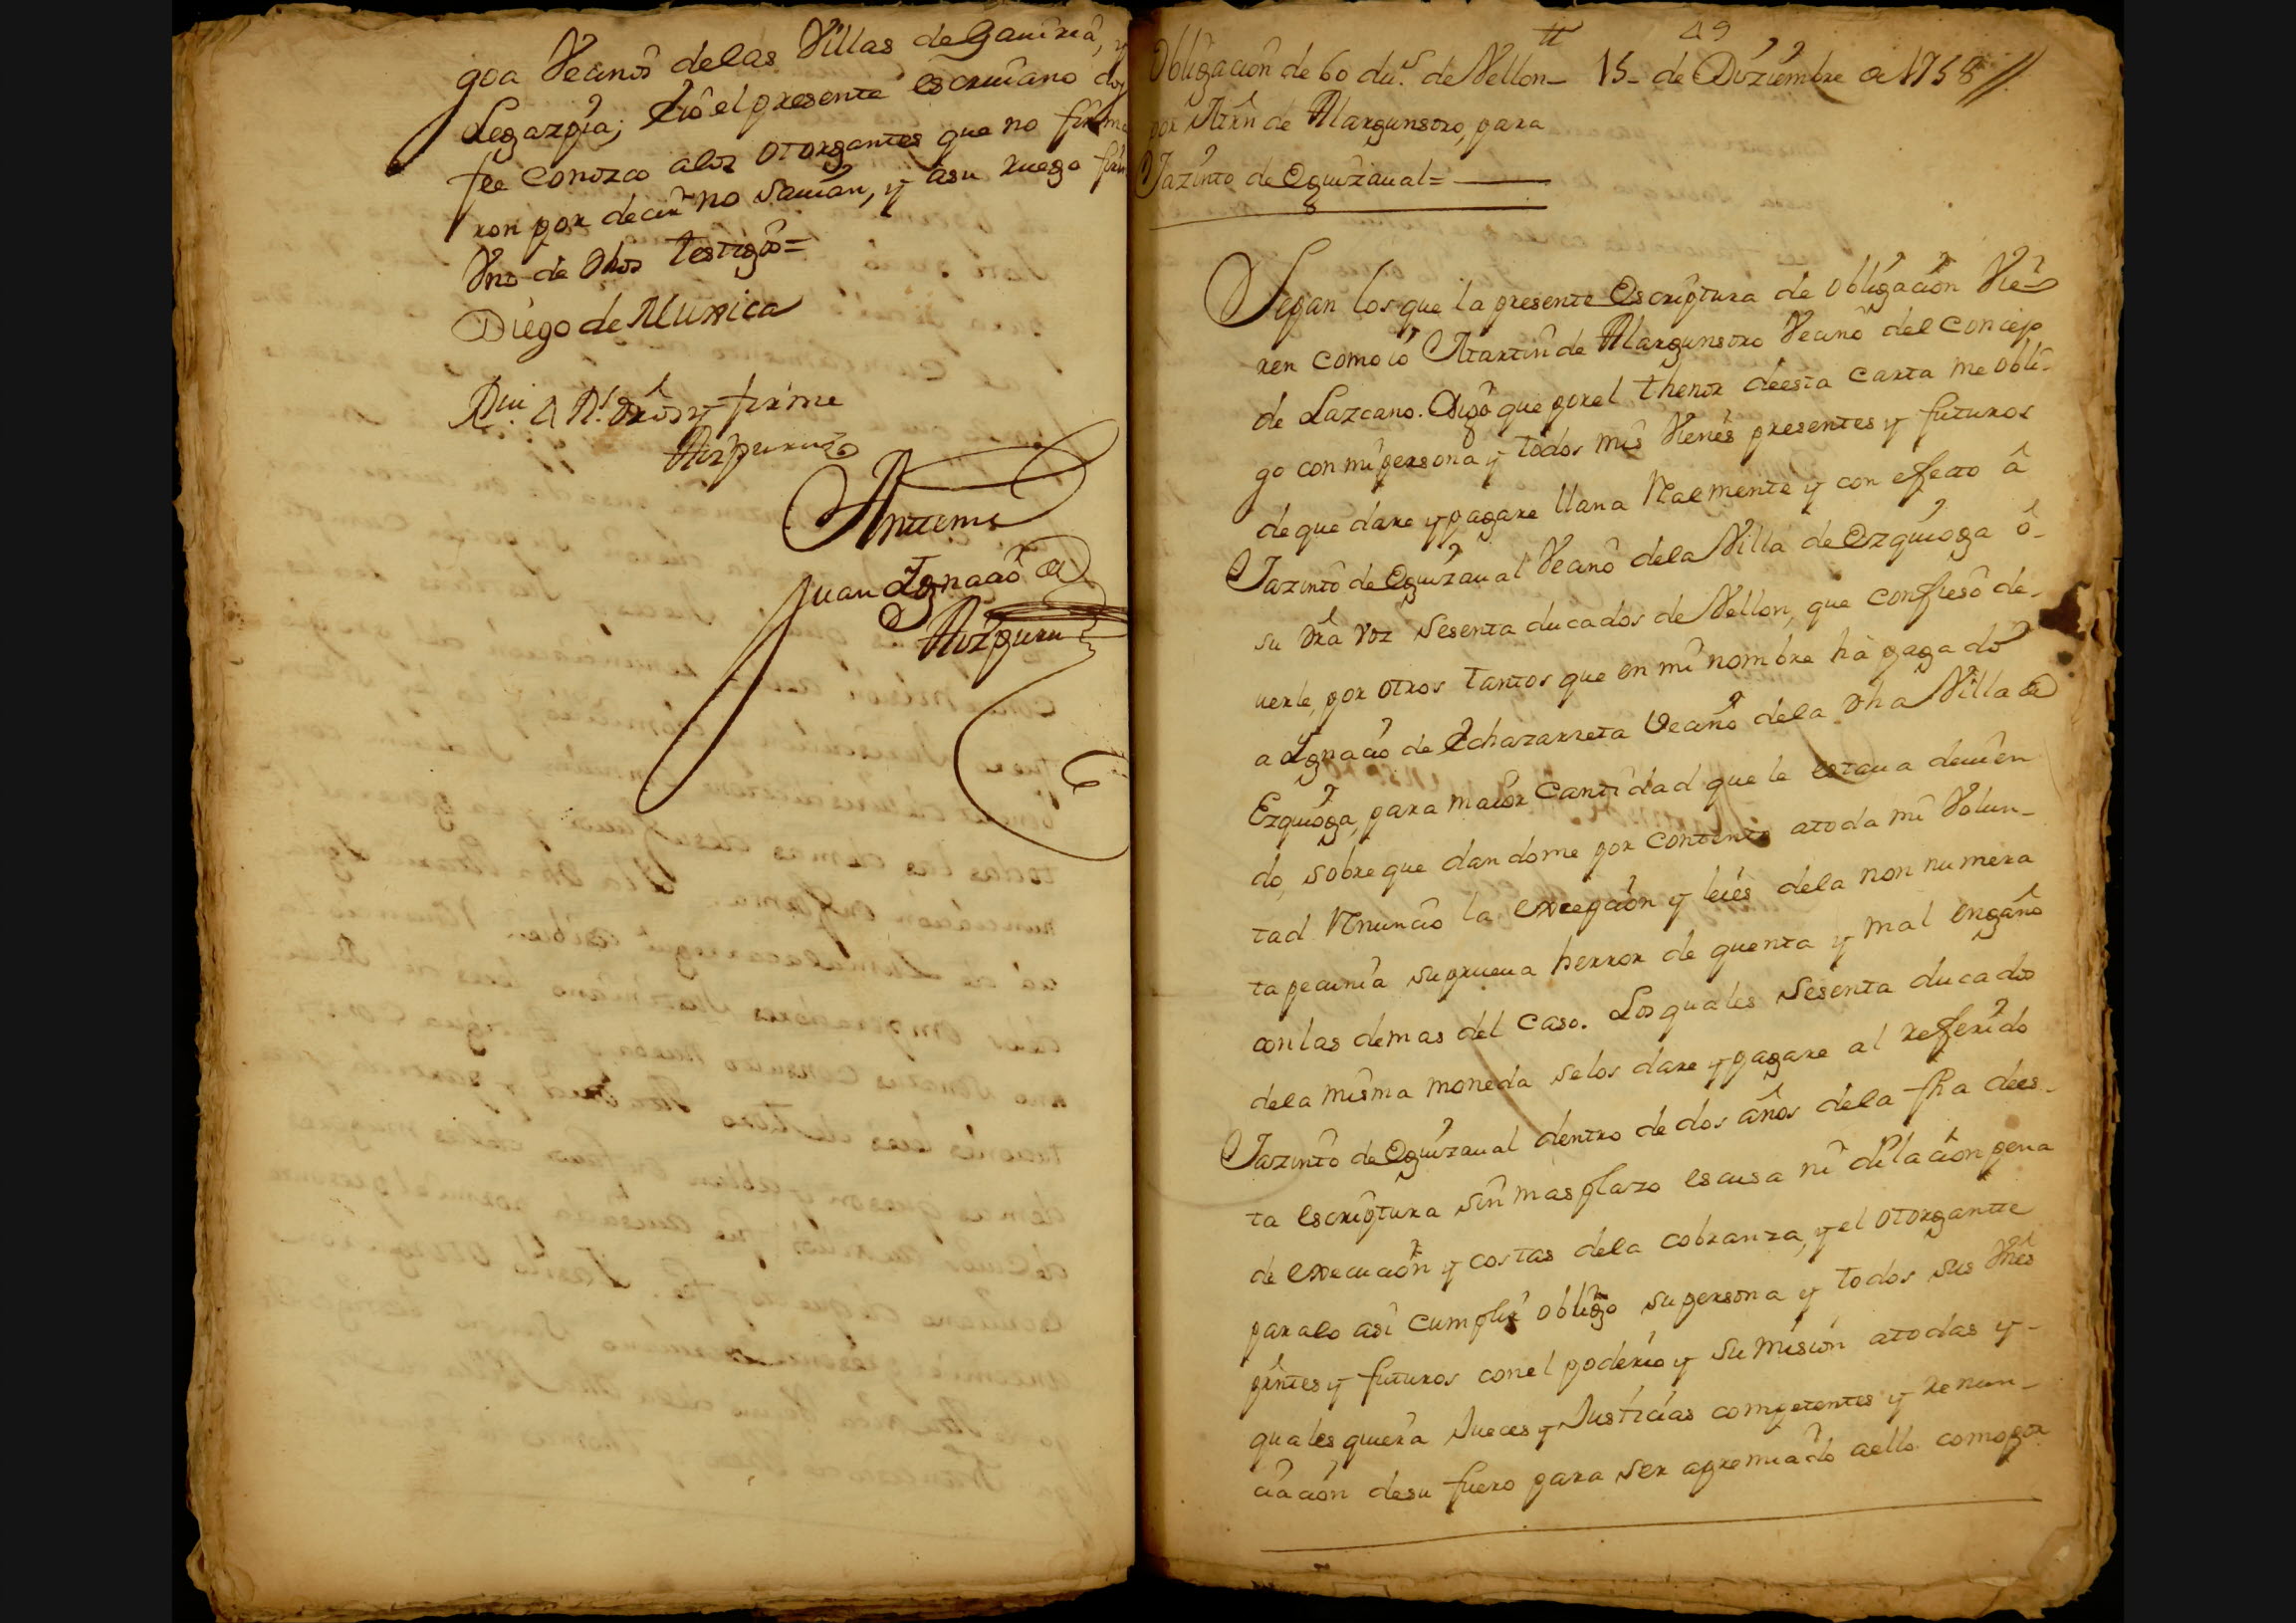 goa Vecinos delas Villas de Gauiria, y
Legazpia; Eió el presente escriuano doy
fee conozco alos otorgantes que no firma
ron por decir no Sauian, y asu ruego firm
Vno de dhos testigos=
Diego de Munica
firme
Aizpuru
Antemi
Juan Ignacio de
Aizpuru
49
Obligacion de 60 du.s de Vellon_ 15_ de Diziembre de 1758//
por Mrn de Margunstro, para
Jazinto de Eguizaual=
Sepan los que la presente Escriptura de obligacion Vie_
ren como io Martin de Margunstro Vecino del concejo
de Lazcano. Digo que por el thenor deesta carta me obli_
go con mi persona y todos mis Vienes presentes y futuros
de que dare y pagare llana Realmente y con efecto á
Jazinto de Eguizaual Vecino dela Villa de Ezquioga ó_
su dra voz Sesenta ducados de Vellon, que confieso de_
uerle, por otros tantos que en mi nombre há pagado
a Ignacio de Echazarreta Vecino dela dha Villa de
Ezquioga, para maior Cantidad que le estaua deuien
do, sobre que dandome por contento atoda mi Volun_
tad Renuncio la excepcion y leies dela non numera
ta pecunia su prueua herror de quenta y mal engaño
con las demas del caso. Los quales Sesenta ducados
dela misma moneda selos dare y pagare al refferido
Jazinto de Eguizaual dentro de dos años dela fha dees_
ta escriptura sin mas plazo escusa ni dilacion pena
de execucion y costas dela cobranza, y el otorgante
paralo asi cumplir obligo supersona y todos sus Vnes
presntes y futuros conel poderio y sumision atodas y_
quales quiera Jueces y Justicias competentes y renun_
ciacion desu fuero para ser apremiado aello como por